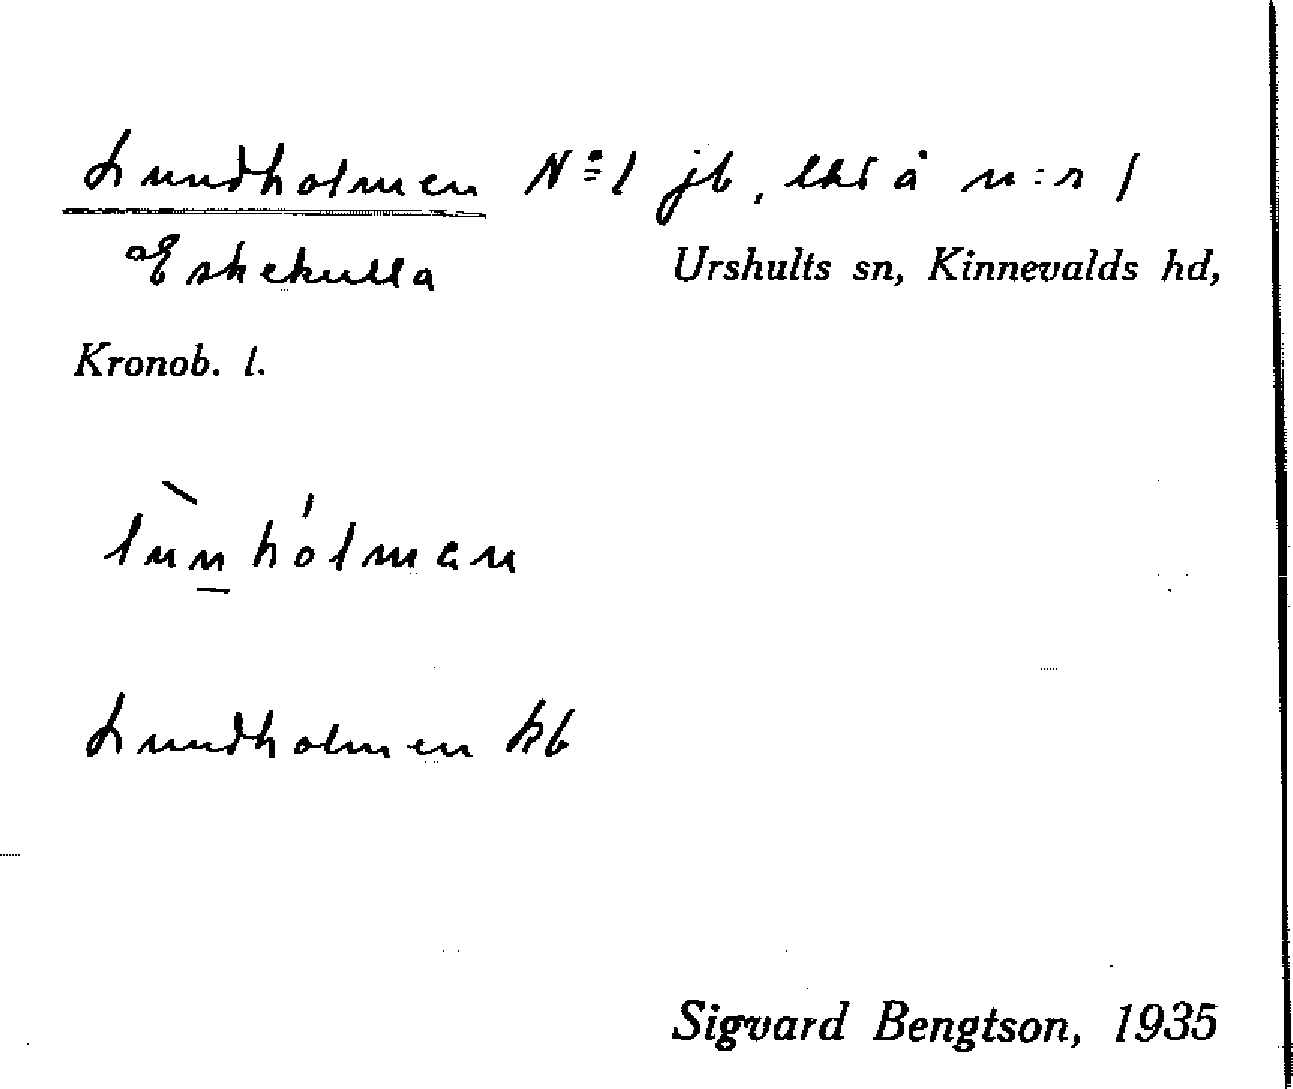 Lundholmen Nº 1 jb, lht å n:r 1
Eskekulla Urshults sn, Kinnevalds hd,
Kronob. l.
lùn hólman
Lundholmen kb
Sigvard Bengtson, 1935